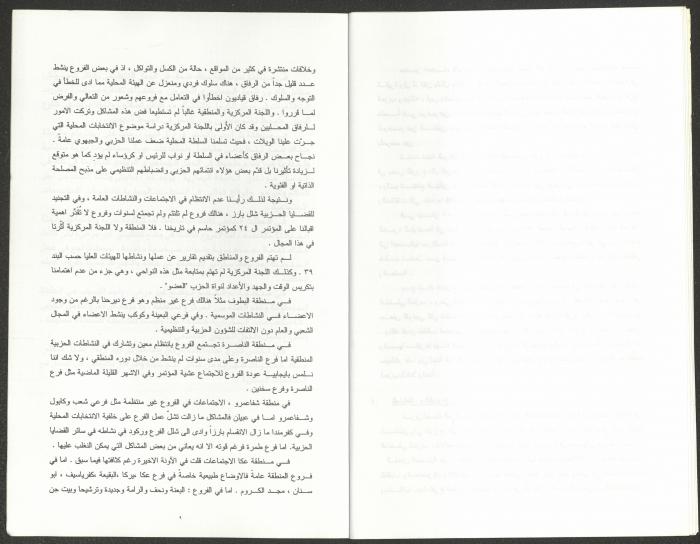 وخلافات منتشرة في كثير من المواقع ، حالة من الكسل والتواكل ، اذ في بعض الفروع ينشط
عدد قليل جداً من الرفاق ، هناك سلوك فردي ومنعزل عن الهيئة المحلية مما ادى للخطأ في
التوجه والسلوك . رفاق قياديون اخطأوا في التعامل مع فروعهم وشعور من التعالي والفرض
لما قرروا . واللجنة المركزية والمنطقية غالباً لم تستطيعا فض هذه المشاكل وتركت الامور
للرفاق المحليين وقد كان الأولى باللجنة المركزية دراسة موضوع الانتخابات المحلية التي
جرّت علينا الويلات ، فحيث تسلمنا السلطة المحلية ضعف عملنا الحزبي والجبهوي عامةً .
نجاح بعض الرفاق كأعضاء في السلطة او نواب للرئيس او كرؤساء لم يؤد كما هو متوقع
لزيادة تأثيرنا بل قدّم بعض هؤلاء انتمائهم الحزبي وانضباطهم التنظيمي على مذبح المصلحة
الذاتية او الفئوية .
ونتيجة لذلك رأينا عدم الانتظام في الاجتماعات والنشاطات العامة ، وفي التجنيد
للقضايا الحزبية شلل بارز ، هنالك فروع لم تلتئم ولم تجتمع لسنوات وفروع لا تُقدّر اهمية
اقبالنا على المؤتمر ال ٢٤ كمؤتمر حاسم في تاريخنا . فلا المنطقة ولا اللجنة المركزية أثّرتا
في هذا المجال .
لم تهتم الفروع والمناطق بتقديم تقارير عن عملها ونشاطها للهيئات العليا حسب البند
٣٩ . وكذلك اللجنة المركزية لم تهتم بمتابعة مثل هذه النواحي ، وهي جزء من عدم اهتمامنا
بتكريس الوقت والجهد والأعداد لنواة الحزب "العضو" .
في منطقة البطوف مثلاً هنالك فرع غير منظم وهو فرع ديرحنا بالرغم من وجود
الاعضاء في النشاطات الموسمية . وفي فرعي البعينة وكوكب ينشط الاعضاء في المجال
الشعبي والعام دون الالتفات للشؤون الحزبية والتنظيمية .
في منطقة الناصرة تجتمع الفروع بانتظام معين وتشارك في النشاطات الحزبية
المنطقية اما فرع الناصرة وعلى مدى سنوات لم ينشط من خلال دوره المنطقي ، ولا شك اننا
نلمس بايجابية عودة الفروع للاجتماع عشية المؤتمر وفي الاشهر القليلة الماضية مثل فرع
الناصرة وفرع سخنين .
في منطقة شفاعمرو ، الاجتماعات في الفروع غير منتظمة مثل فرعي شعب وكابول
وشفاعمرو اما في عبلين فالمشاكل ما زالت تشلّ عمل الفرع على خلفية الانتخابات المحلية
وفي كفرمندا ما زال الانقسام بارزاً وادى الى شلل الفرع وركود في نشاطه في سائر القضايا
الحزبية. اما فرع طمرة فرغم قوته الا انه يعاني من بعض المشاكل التي يمكن التغلب عليها .
في منطقة عكا الاجتماعات قلت في الآونة الاخيرة رغم كثافتها فيما سبق . اما في
فروع المنطقة عامة فالاوضاع طبيعية خاصةً في فرع عكا ،يركا ،البقيعة ،كفرياسيف ، ابو
سنان ، مجد الكروم . اما في الفروع : البعنة ونحف والرامة وجديدة وترشيحا وبيت جن